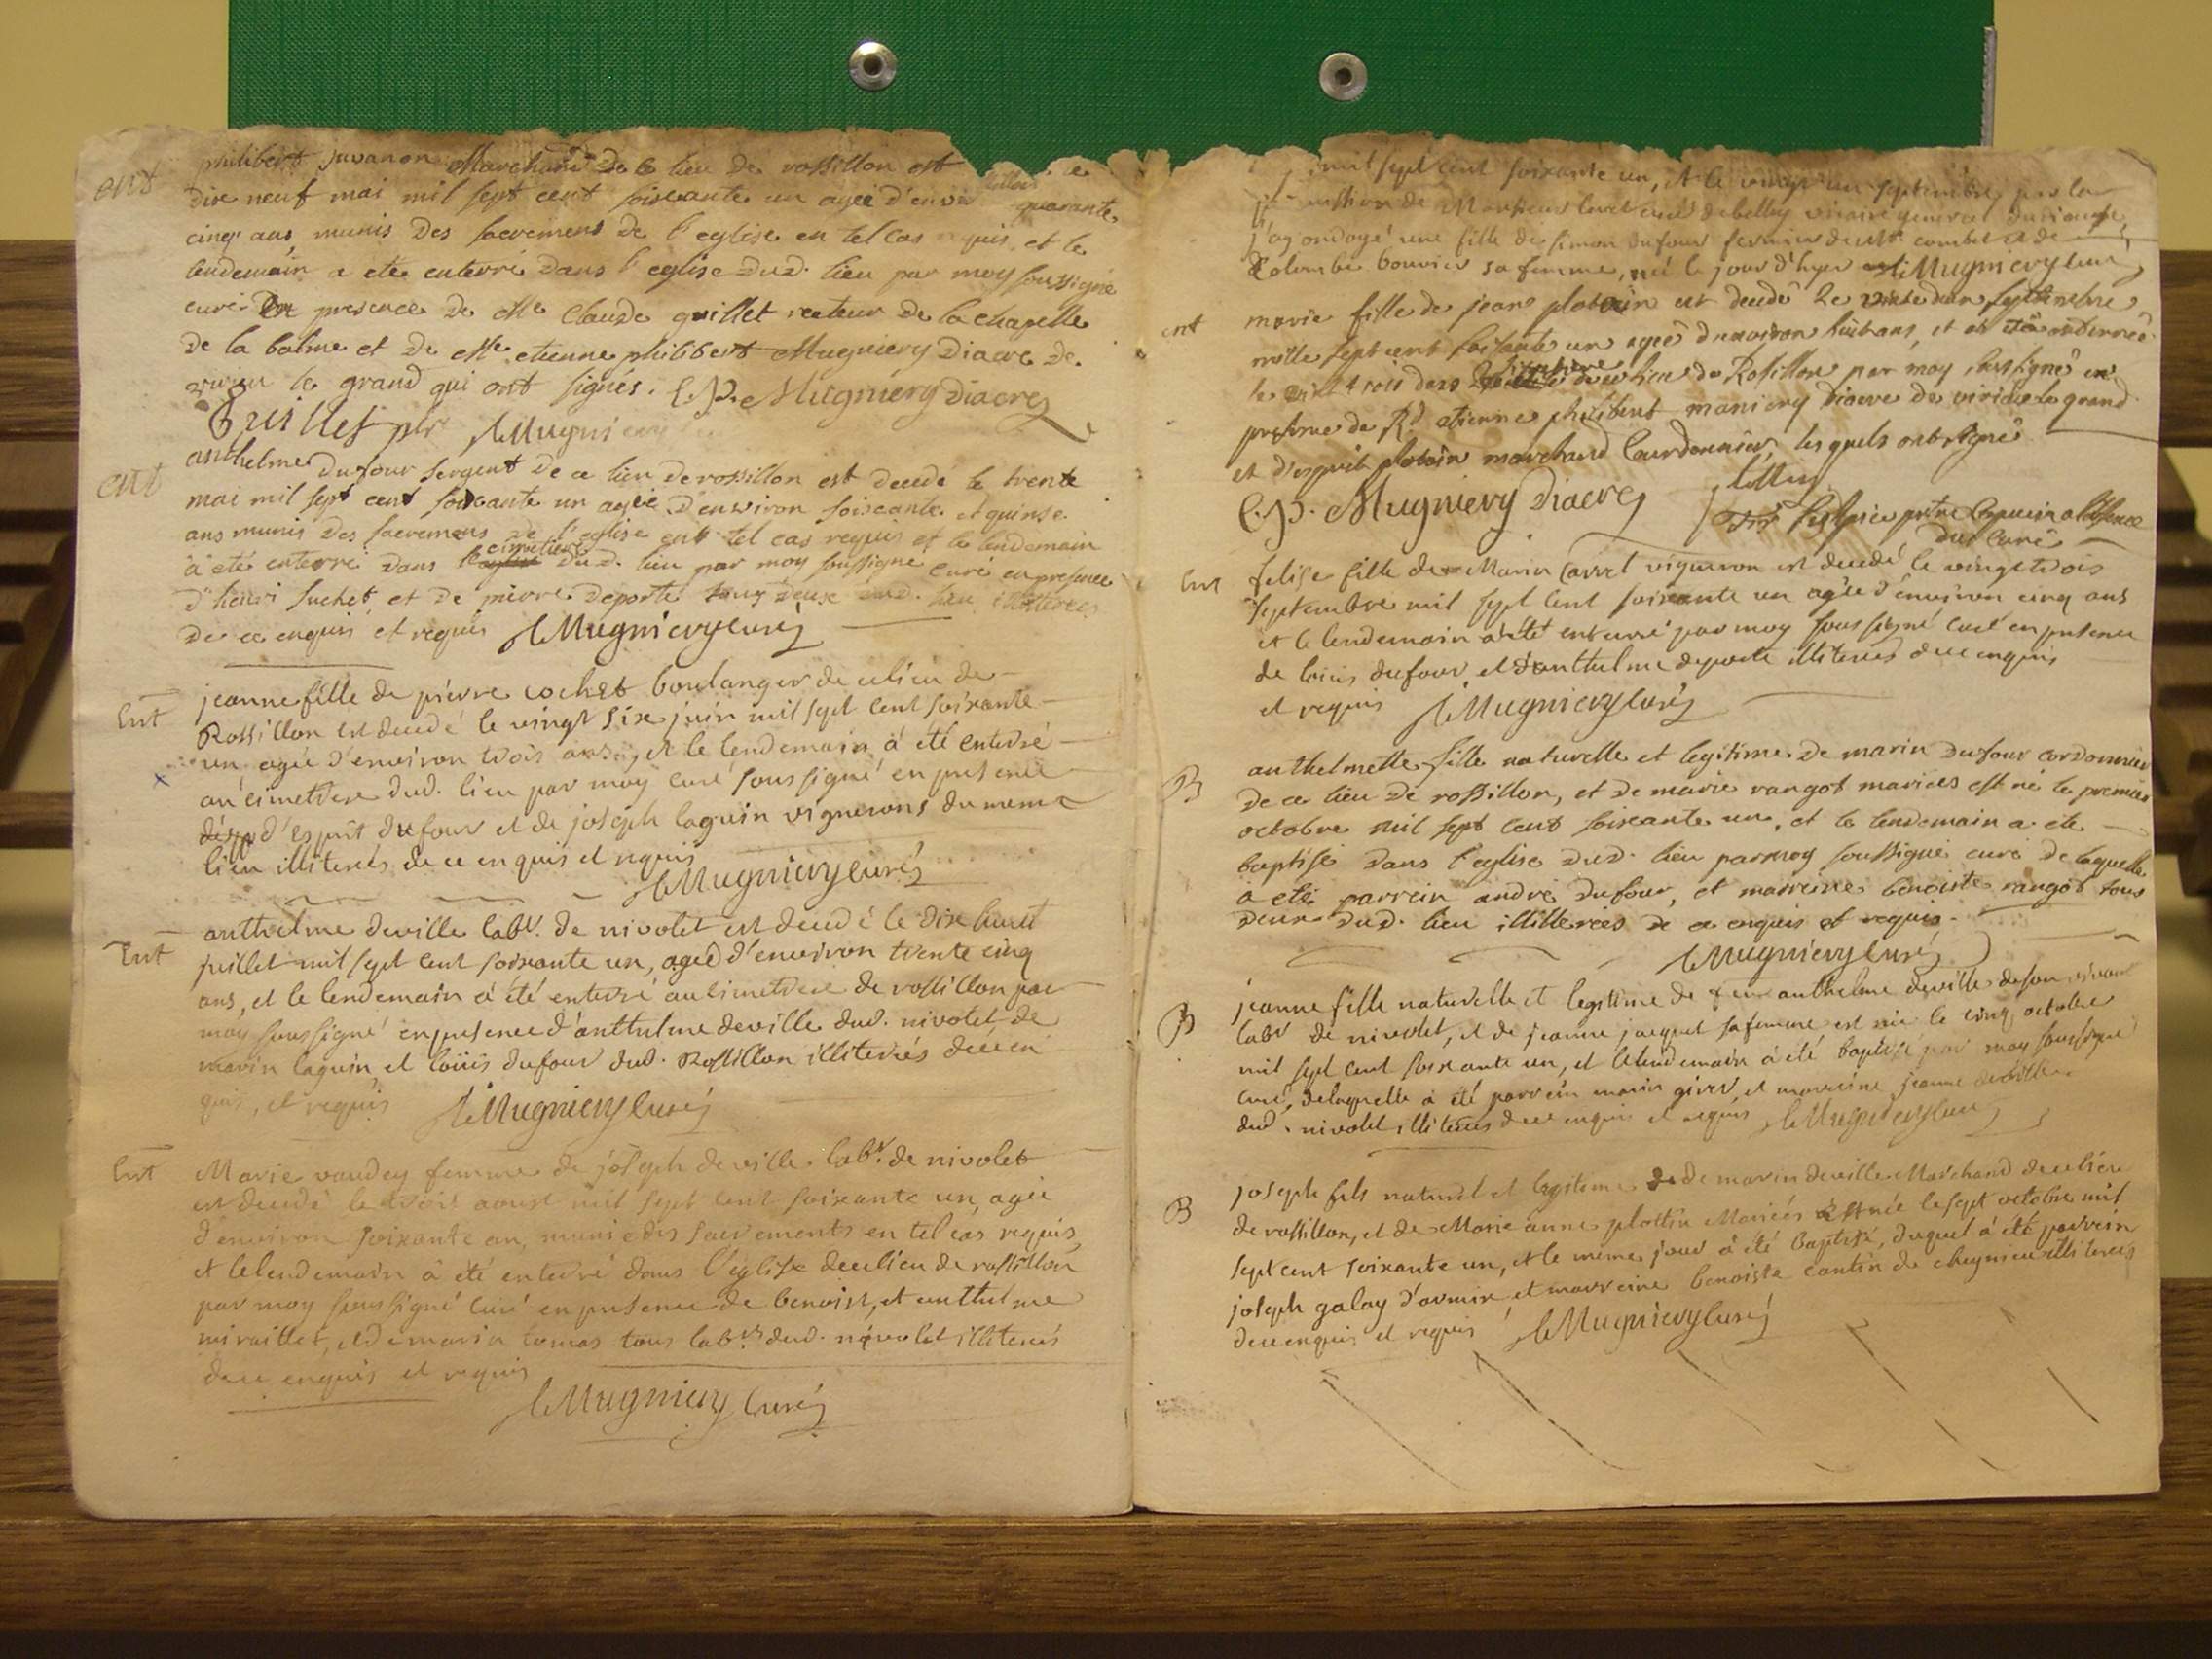 ent
philibert juvanon Marchand de ce lieu de rossillon est
dixe neuf mai mil sept cent soixante un agée d'envi quarante
cinq ans munis des sacremens de l'eglise en tel cas quis et le
lendemain a eté enterré dans l'eglise dud. lieu par moy soussigné
curé en presence de Mre Claude guillet recteur de la chapelle
de la balme et de Mre etienne philibert Mugniery Diacre de
virieu le grand qui ont signés. E. P. Mugniery Diacre
Guillet ptre Mugniery
ent
anthelme dufour sergent de ce lieu de rossillon est decedé le trente
mai mil sept cent soixante un agée d'environ soixante et quinse
ans munis des sacremens de l'eglise en tel cas requis et le lendemain
à eté enterré dans le cimetiere dud. lieu par moy soussigné curé en presence
d'henri suchet et de pierre deporte tous deux dud. lieu illitteres
de ce enquis et requis Mugniery curé
Ent
jeanne fille de pierre cochet boulanger de ce lieu de
Rossillon est decedé le vingt six juin mil sept cent soixante
un agée d'environ trois ans, et le lendemain à été enterré
au cimettere dud. lieu par moy curé soussigné en presence
d'esprit dufour et de joseph laguin vignerons du meme
lieu illiterés de ce enquis et requis
Mugniery curé
Ent
anthelme deville labr. de nivolet est decedé le dix huit
juillet mil sept cent soixante un, aged d'environ trente cinq
ans, et le lendemain à été enterré au cimettere de rossillon par
moy soussigné en presence d'anthelme deville dud. nivolet, de
marin laguin, et loüis dufour dud. Rossillon illiterés de ce en
quis, et requis Mugniery curé
Ent
Marie vaudey femme de joseph deville labr. de nivolet
est decedé le trois aoust mil sept cent soixante un, agée
d'environ soixante an, munie des sacrements en tel cas requis,
et le lendemain à été enterré dans l'église de ce lieu de rossillon
par moy soussigné curé en presence de benoist, et anthelme
miraillet, et de marin tomas tous labrs. dud. nivolet illiterés
de ce enquis et requis
Mugniery curé
mil sept cent soixante un, et le vingt un septembre, par la
mission de Monsieur curé de belley vicaire general
j'ay ondoyé une fille de simon dufour fermier de Mr combet et de
Colombe bouvier sa femme, né le jour d'hyer Mugniery curé
ent
marie fille de jean plotin est decedé le septembre
mille sept cent soisante un agée d'environ huit ans, et at été enterrée
le vint trois dans le cimetiere de ce lieu de Rosillon par moy soussigné en
presence de Rd etienne philibert maniery diacre de virieu le grand
et d'esprit plotin marchand Courdonnier, les quels ont signés
E. P. Mugniery Diacre plottin
fr. ptre Capucin a l'absence
du Curé
Ent
felise fille de Marin vigneron est decedé le vingt trois
septembre mil sept cent soixante un agée d'environ cinq ans
et le lendemain at été enterré par moy soussigné curé en presence
de loüis dufour et d'anthelme deporte illiterés de ce enquis
et requis Mugniery curé
B
anthelmette fille naturelle et legitime de marin dufour cordonnier
de ce lieu de rossillon, et de marie rangot mariees est né le premier
octobre mil sept cent soixante un, et le lendemain a eté
baptisé dans l'eglise dud. lieu par moy soussigné curé de laquelle
à eté parrein andré dufour, et marreine benoiste rangot tous
deux dud. lieu illitterées de ce enquis et requis.
Mugniery curé
B
jeanne fille naturelle et legitime de feu anthelme deville de son vivant
labr de nivolet, et de jeanne jacquet sa femme est née le cinq octobre
mil sept cent soixante un, et le lendemain à été baptisé par moy soussigné
curé, de laquelle à été parrein marin givet, et marreine jeanne deville
dud. nivolet illiterés de ce enquis et requis Mugniery curé
B
joseph fils naturel et legitime de marin deville Marchand de ce lieu
de rossillon, et de Marie anne plottin Mariées est née le sept octobre mil
sept cent soixante un, et le meme jour à été baptisé, duquel à été parrein
joseph galay d'armix, et marreine benoista cantin de cheynieu illiterés
de ce enquis et requis Mugniery curé